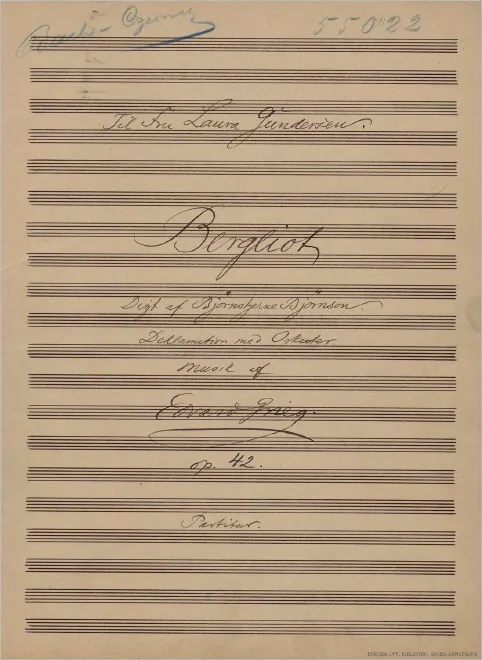 55022
Til Fru Laura Gundersen.
Bergliot
Digt af Björnstjerne Björnson.
Deklamation med Orkester
Musik af
Edvard Grieg.
op. 42.
Partitur.
BERGEN OFF. BIBLIOTEK. GRIEG-SAMLINGEN